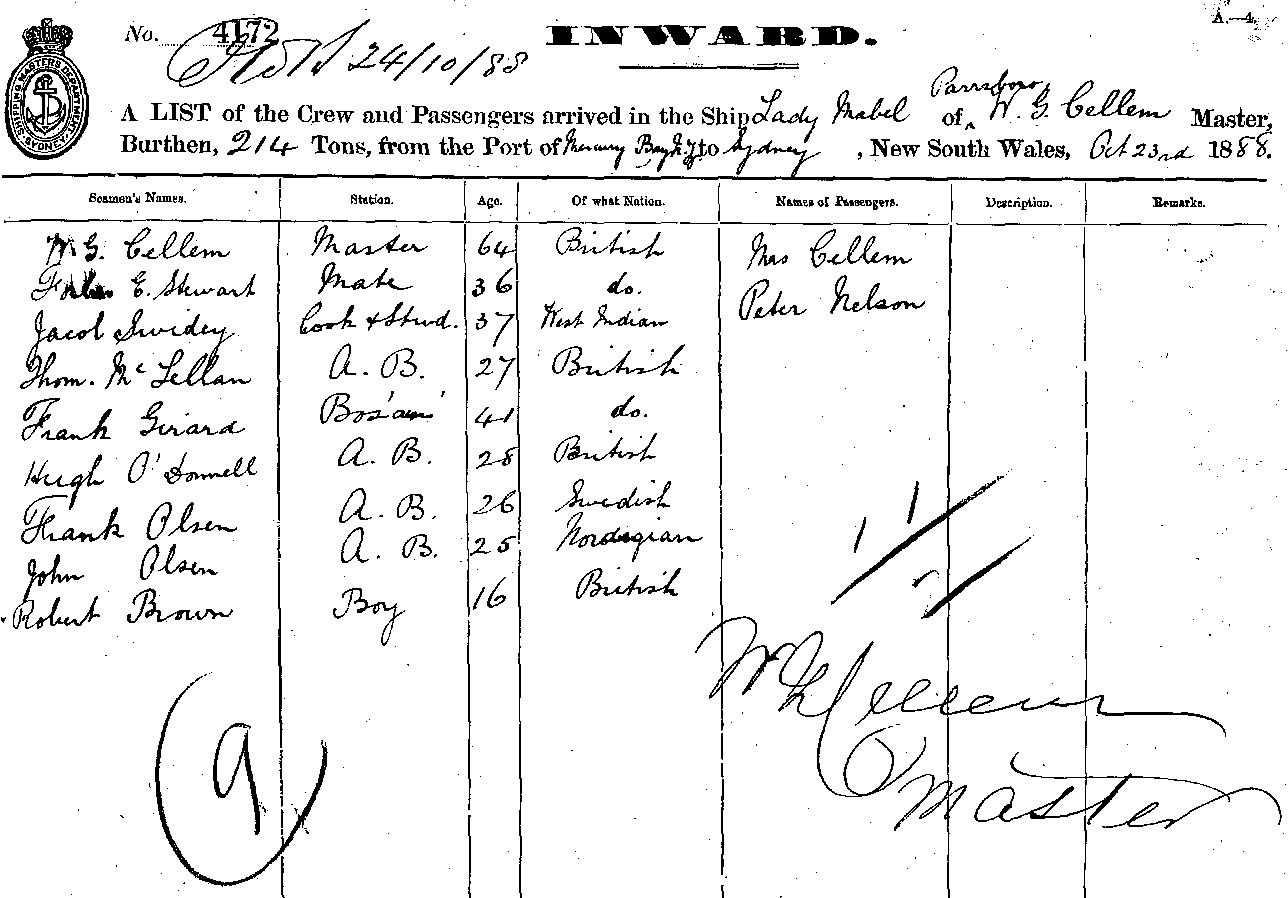 A.—4.
No. 4172
INWARD.
24/10/88
SHIPPING MASTERS DEPARTMENT SYDNEY
Parrsboro
A LIST of the Crew and Passengers arrived in the Ship Lady Mabel of W. G. Cellem Master,
Burthen, 214 Tons, from the Port of Mercury Bay N.Z. to Sydney, New South Wales, Oct 23rd 1888.
Seamen's Names. Station. Age. Of what Nation. Names of Passengers. Description. Remarks.
W. G. Cellem Master 64 British Mrs Cellem
E. Stewart Mate 36 do. Peter Nelson
Jacob Cook & Stwd. 37 West Indian
Thom. McLellan A. B. 27 British
Frank Girard Bos'am' 41 do.
Hugh O'Donnell A. B. 28 British
Frank Olsen A. B. 26 Swedish
John Olsen A. B. 25 Nordigian
Robert Brown Boy 16 British
1 1
9
W G Cellem
Master